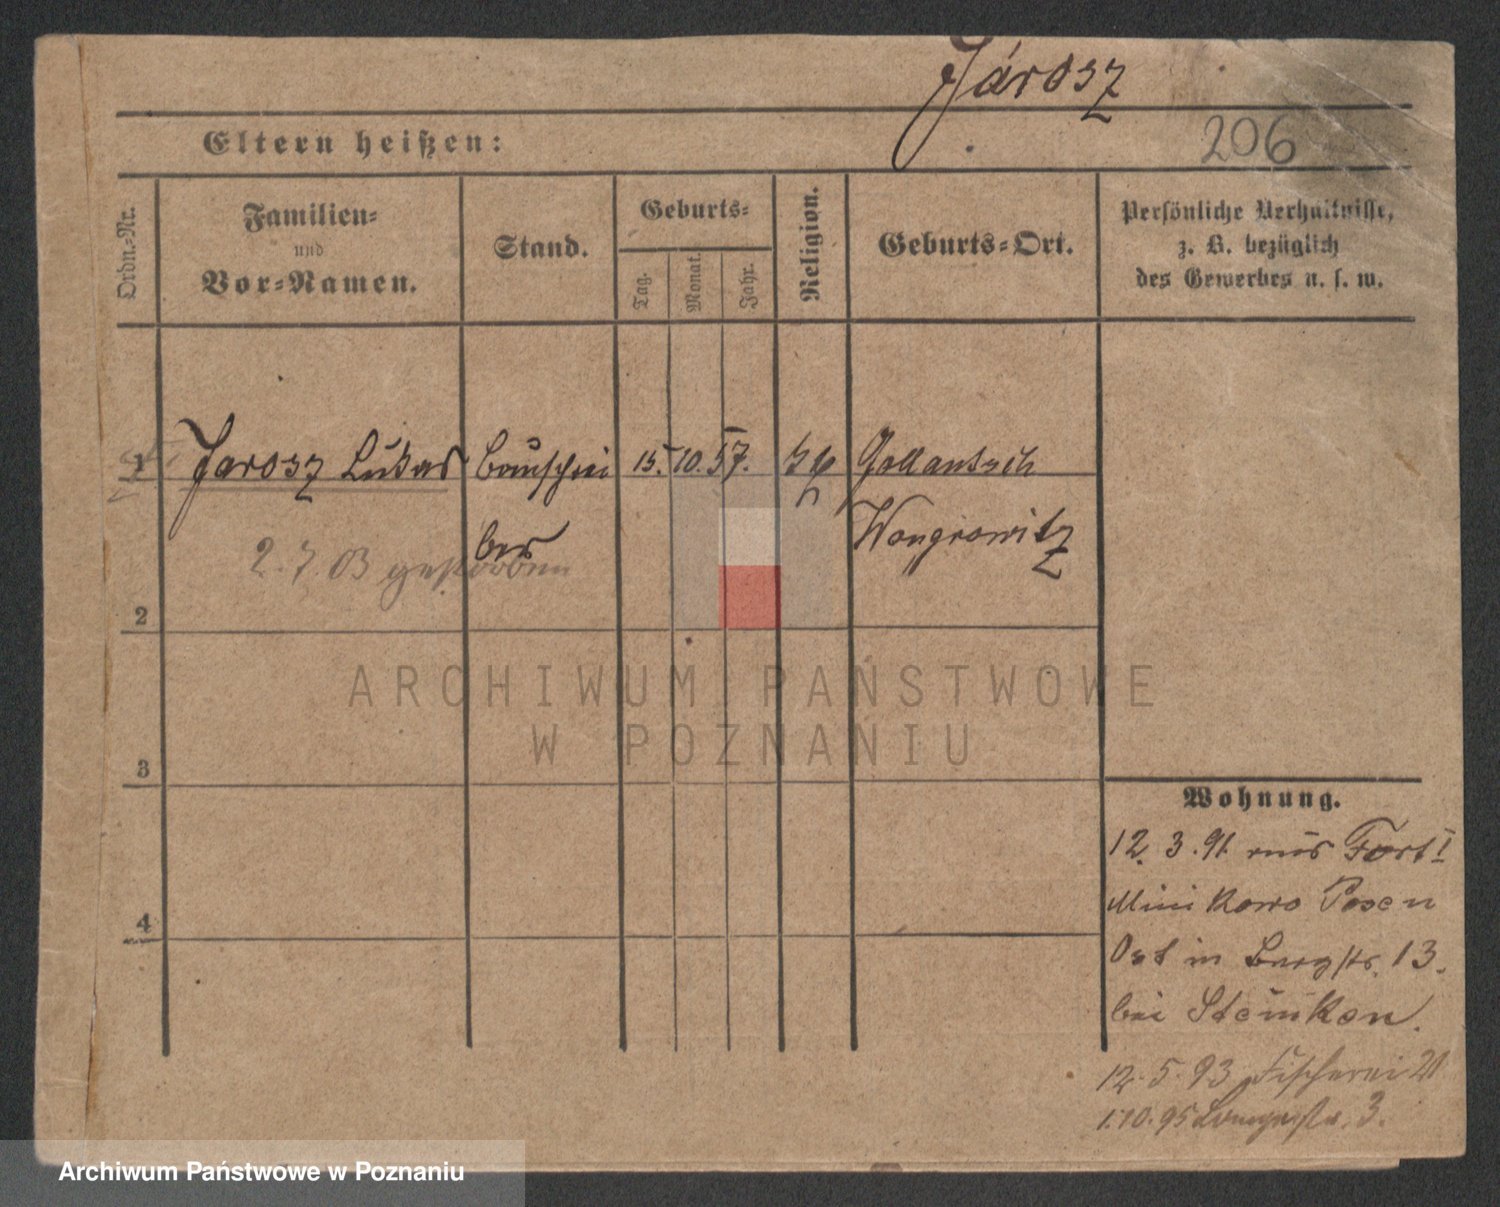 Járosz
206
Eltern heißen:
Ordn.-Nr.
Familien-
und
Vor-Namen.
Stand.
Geburts-
Tag.
Monat.
Jahr.
Religion.
Geburts-Ort.
Persönliche Verhältnisse,
z. B. bezüglich
des Gewerbes u. s. w.
1
Jarosz Lukas Bauschrei 15. 10. 57. Gollantsch
ber Wongrowitz
2.7.03 gestorben
2
ARCHIWUM PAŃSTWOWE
W POZNANIU
3
Wohnung.
12. 3. 91. aus Fort I
Minikowo Posen
Ost in Bergstr. 13.
bei Steinken.
4
12. 5. 93 Fischerei 21
1.10.95 Langestr. 3.
Archiwum Państwowe w Poznaniu